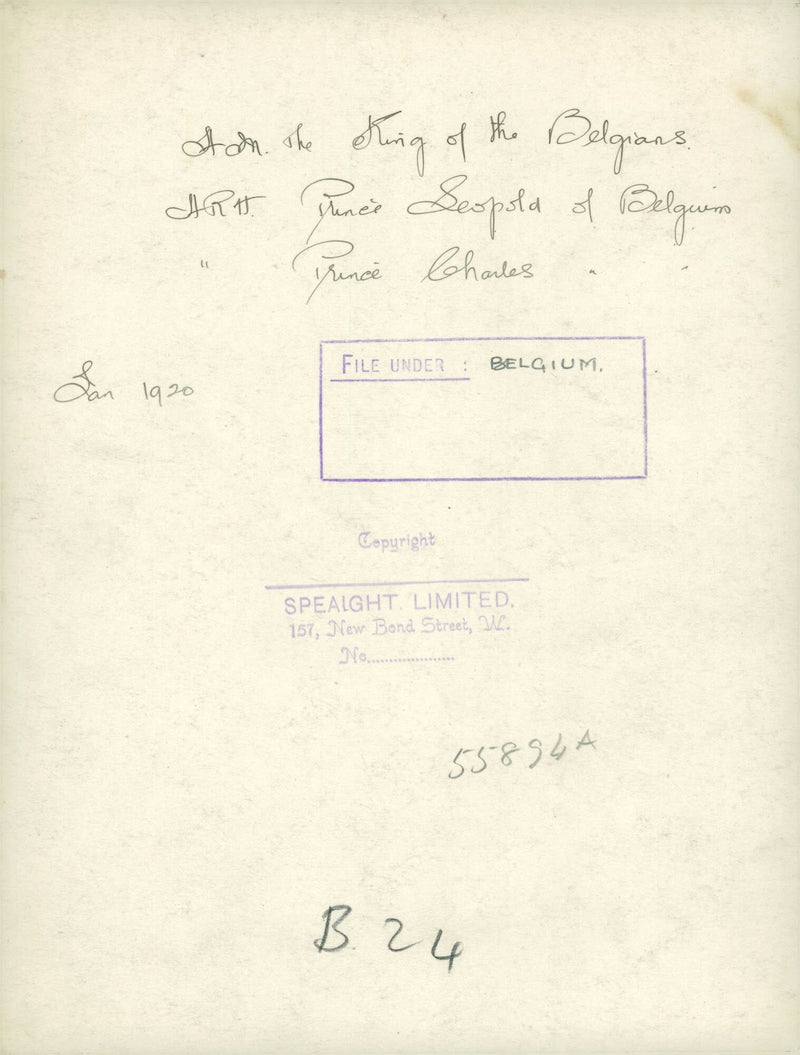 H.M. The King of the Belgians.
H.R.H. Prince Leopold of Belgium
" Prince Charles " "
Jan 1920
FILE UNDER : BELGIUM.
Copyright
SPEAIGHT. LIMITED.
157, New Bond Street, W.
No....................
55894A
B. 24